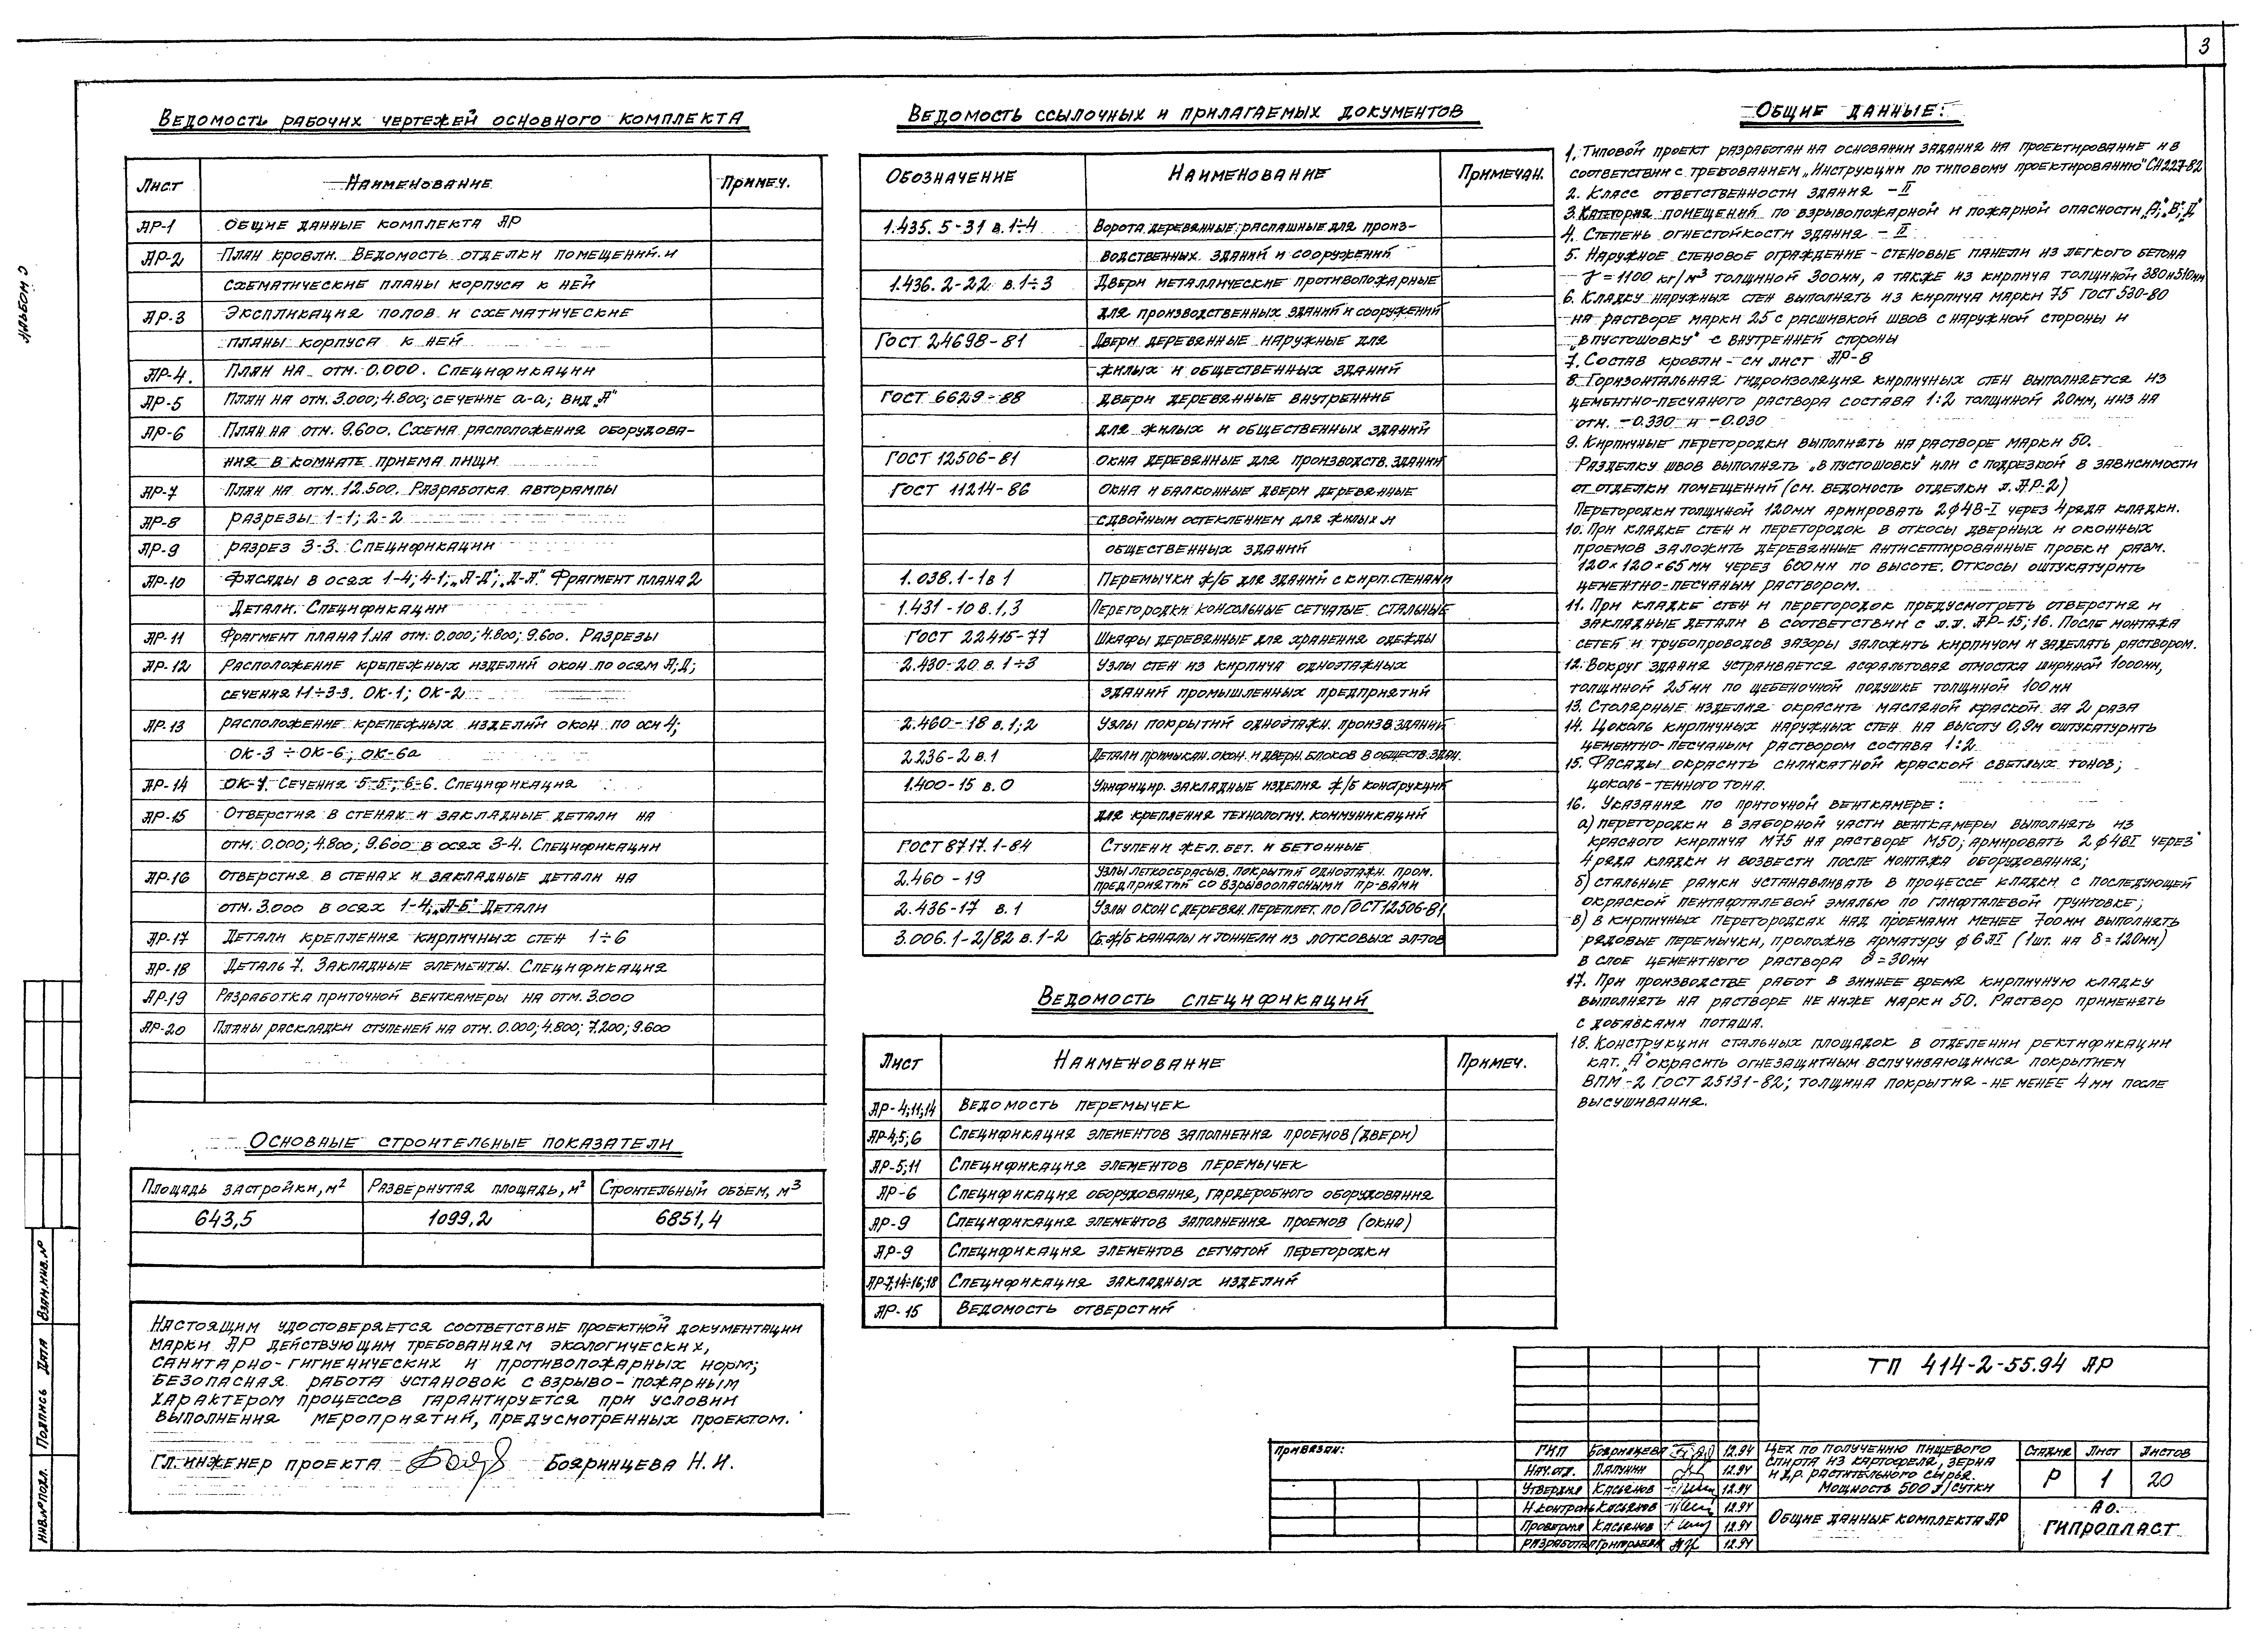 3
Альбом С
Ведомость рабочих чертежей основного комплекта
Лист Наименование Примеч.
АР-1 Общие данные комплекта АР
АР-2 План кровли. Ведомость отделки помещений и
схематические планы корпуса к ней
АР-3 Экспликация полов и схематические
планы корпуса к ней
АР-4. План на отм. 0.000. Спецификации
АР-5 План на отм. 3.000; 4.800; сечение а-а; вид „А"
АР-6 План на отм. 9.600. Схема расположения оборудова-
ния в комнате приема пищи
АР-7 План на отм. 12.500. Разработка авторампы
АР-8 Разрезы 1-1; 2-2
АР-9 Разрез 3-3. Спецификации
АР-10 Фасады в осях 1-4; 4-1; „А-Д"; „Д-А". Фрагмент плана 2
Детали. Спецификации
АР-11 Фрагмент плана 1 на отм. 0.000; 4.800; 9.600. Разрезы
АР-12 Расположение крепежных изделий окон по осям А; Д;
сечения 1-1÷3-3. ОК-1; ОК-2
АР-13 Расположение крепежных изделий окон по оси 4;
ОК-3 ÷ ОК-6; ОК-6а
АР-14 ОК-7. Сечения 5-5; 6-6. Спецификация
АР-15 Отверстия в стенах и закладные детали на
отм. 0.000; 4.800; 9.600 в осях 3-4. Спецификации
АР-16 Отверстия в стенах и закладные детали на
отм. 3.000 в осях 1-4; „А-Б" Детали
АР-17 Детали крепления кирпичных стен 1÷6
АР-18 Деталь 7. Закладные элементы. Спецификация
АР-19 Разработка приточной венткамеры на отм. 3.000
АР-20 Планы раскладки ступеней на отм. 0.000; 4.800; 7.200; 9.600
Основные строительные показатели
Площадь застройки, м² Развернутая площадь, м² Строительный объем, м³
643,5 1099,2 6851,4
Настоящим удостоверяется соответствие проектной документации
марки АР действующим требованиям экологических,
санитарно-гигиенических и противопожарных норм;
безопасная работа установок с взрыво-пожарным
характером процессов гарантируется при условии
выполнения мероприятий, предусмотренных проектом.
Гл. инженер проекта Бояринцева Н.И.
Ведомость ссылочных и прилагаемых документов
Обозначение Наименование Примечан.
1.435.5-31 в.1÷4 Ворота деревянные распашные для произ-
водственных зданий и сооружений
1.436.2-22 в.1÷3 Двери металлические противопожарные
для производственных зданий и сооружений
ГОСТ 24698-81 Двери деревянные наружные для
жилых и общественных зданий
ГОСТ 6629-88 Двери деревянные внутренние
для жилых и общественных зданий
ГОСТ 12506-81 Окна деревянные для производств. зданий
ГОСТ 11214-86 Окна и балконные двери деревянные
с двойным остеклением для жилых и
общественных зданий
1.038.1-1 в 1 Перемычки ж/б для зданий с кирп. стенами
1.431-10 в.1,3 Перегородки консольные сетчатые стальные
ГОСТ 22415-77 Шкафы деревянные для хранения одежды
2.430-20 в.1÷3 Узлы стен из кирпича одноэтажных
зданий промышленных предприятий
2.460-18 в.1;2 Узлы покрытий одноэтажн. произв. зданий
2.236-2 в.1 Детали примыкан. окон. и дверн. блоков в обществ. здан.
1.400-15 в.0 Унифицир. закладные изделия ж/б конструкций
для крепления технологич. коммуникаций
ГОСТ 8717.1-84 Ступени жел. бет. и бетонные
2.460-19 Узлы легкосбрасыв. покрытий одноэтажн. пром.
предприятий со взрывоопасными пр-вами
2.436-17 в.1 Узлы окон с деревян. переплет. по ГОСТ 12506-81
3.006.1-2/82 в.1-2 Сб. ж/б каналы и тоннели из лотковых эл-тов
Ведомость спецификаций
Лист Наименование Примеч.
АР-4;11;14 Ведомость перемычек
АР-4;5;6 Спецификация элементов заполнения проемов (двери)
АР-5;11 Спецификация элементов перемычек
АР-6 Спецификация оборудования, гардеробного оборудования
АР-9 Спецификация элементов заполнения проемов (окна)
АР-9 Спецификация элементов сетчатой перегородки
АР-7;14÷16;18 Спецификация закладных изделий
АР-15 Ведомость отверстий
Общие данные:
1. Типовой проект разработан на основании задания на проектирование и в
соответствии с требованием „Инструкции по типовому проектированию" СН 227-82
2. Класс ответственности здания – II
3. Категория помещений по взрывопожарной и пожарной опасности „А"; „В"; „Д"
4. Степень огнестойкости здания – II
5. Наружное стеновое ограждение – стеновые панели из легкого бетона
γ = 1100 кг/м³ толщиной 300мм, а также из кирпича толщиной 380 и 510мм
6. Кладку наружных стен выполнять из кирпича марки 75 ГОСТ 530-80
на растворе марки 25 с расшивкой швов с наружной стороны и
„в пустошовку" с внутренней стороны
7. Состав кровли – см лист АР-8
8. Горизонтальная гидроизоляция кирпичных стен выполняется из
цементно-песчаного раствора состава 1:2 толщиной 20мм, низ на
отм. –0.330 и –0.030
9. Кирпичные перегородки выполнять на растворе марки 50.
Разделку швов выполнять „в пустошовку" или с подрезкой в зависимости
от отделки помещений (см. ведомость отделки л. АР-2)
Перегородки толщиной 120мм армировать 2ф4В-I через 4 ряда кладки.
10. При кладке стен и перегородок в откосы дверных и оконных
проемов заложить деревянные антисептированные пробки разм.
120×120×65мм через 600мм по высоте. Откосы оштукатурить
цементно-песчаным раствором.
11. При кладке стен и перегородок предусмотреть отверстия и
закладные детали в соответствии с л.л. АР-15;16. После монтажа
сетей и трубопроводов зазоры заложить кирпичом и заделать раствором.
12. Вокруг здания устраивается асфальтовая отмостка шириной 1000мм,
толщиной 25мм по щебеночной подушке толщиной 100мм
13. Столярные изделия окрасить масляной краской за 2 раза
14. Цоколь кирпичных наружных стен на высоту 0,9м оштукатурить
цементно-песчаным раствором состава 1:2
15. Фасады окрасить силикатной краской светлых тонов;
цоколь – темного тона.
16. Указания по приточной венткамере:
а) перегородки в заборной части венткамеры выполнять из
красного кирпича М75 на растворе М50; армировать 2ф4ВI через
4 ряда кладки и возвести после монтажа оборудования;
б) стальные рамки устанавливать в процессе кладки с последующей
окраской пентафталевой эмалью по глифталевой грунтовке;
в) в кирпичных перегородках над проемами менее 700мм выполнять
рядовые перемычки, проложив арматуру ф6АI (1шт. на δ=120мм)
в слое цементного раствора δ=30мм
17. При производстве работ в зимнее время кирпичную кладку
выполнять на растворе не ниже марки 50. Раствор применять
с добавками поташа.
18. Конструкции стальных площадок в отделении ректификации
кат. „А" окрасить огнезащитным вспучивающимся покрытием
ВПМ-2 ГОСТ 25131-82; толщина покрытия – не менее 4мм после
высушивания.
ТП 414-2-55.94 АР
Привязан:
ГИП Бояринцева 12.94
Нач. отд. Папунин 12.94
Утвердил Касьянов 12.94
Н. контроль Касьянов 12.94
Проверил Касьянов 12.94
Разработал Григорьева 12.94
Цех по получению пищевого
спирта из картофеля, зерна
и др. растительного сырья.
Мощность 500 л/сутки
Стадия Лист Листов
Р 1 20
Общие данные комплекта АР
АО.
ГИПРОПЛАСТ
Инв.№ подл. Подпись Дата Взам. инв. №